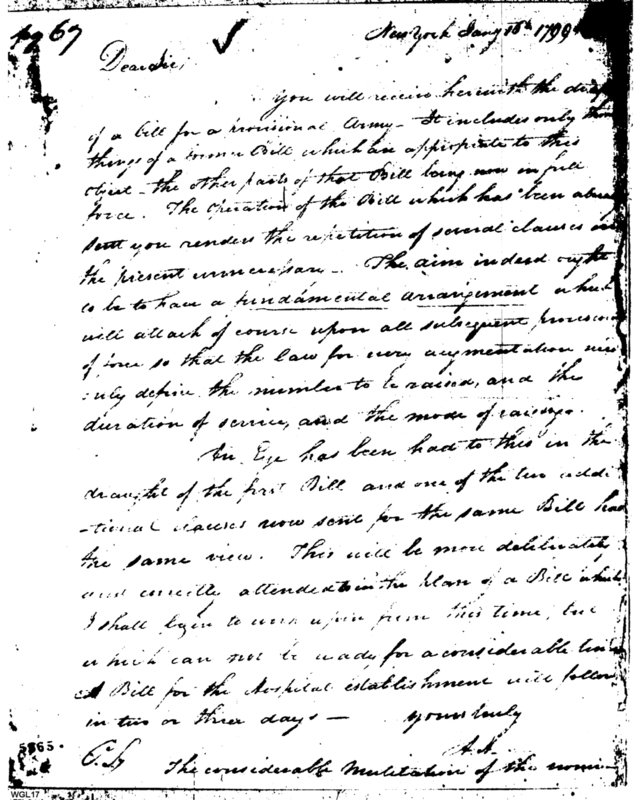 pg 67
New York Jany 16th 1799
Dear Sir,
You will receive herewith the draft
of a bill for a provisional Army - It includes only those
things of a former Bill which are appropriate to this
object - the other parts of that Bill being now in full
force. The operation of the Bill which has been already
sent you renders the repetition of several clauses in
the present unnecessary - The aim indeed ought
to be to have a fundamental arrangement which
will attach of course upon all subsequent provisions
of force so that the law for every augmentation need
only define the number to be raised, and the
duration of service, and the mode of raising.
An Eye has been had to this in the
draught of the first Bill and one of the ten addi
-tional clauses now sent for the same Bill has
the same view. This will be more deliberately
and correctly attended to in the plan of a Bill which
I shall begin to work upon from this time, but
which can not be ready for a considerable time
A Bill for the Hospital establishment will follow
in two or three days - yours truly
A.H.
The considerable Mutilation of the
WGL17